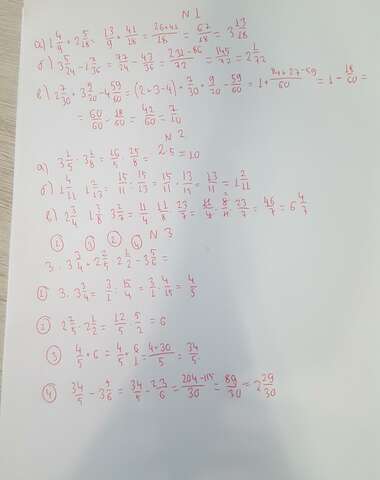 N 1
а) 1 4/9 + 2 5/18 = 13/9 + 41/18 = 26+41/18 = 67/18 = 3 13/18
б) 3 5/24 - 1 7/36 = 77/24 - 43/36 = 231-86/72 = 145/72 = 2 1/72
в) 2 7/30 + 3 9/20 - 4 59/60 = (2+3-4) + 7/30 + 9/20 - 59/60 = 1 + 14+27-59/60 = 1 - 18/60 =
= 60/60 - 18/60 = 42/60 = 7/10
N 2
а) 3 1/5 · 3 1/8 = 16/5 · 25/8 = 2·5 = 10
б) 1 4/11 : 1 2/13 = 15/11 : 15/13 = 15/11 · 13/15 = 13/11 = 1 2/11
в) 2 3/4 : 1 3/8 · 3 2/7 = 11/4 · 8/11 · 23/7 = 46/7 = 6 4/7
N 3
1 3 2 4
3 : 3 3/4 + 2 2/5 · 2 1/2 - 3 5/6 =
1 3 : 3 3/4 = 3/1 : 15/4 = 3/1 · 4/15 = 4/5
2 2 2/5 · 2 1/2 = 12/5 · 5/2 = 6
3 4/5 + 6 = 4/5 + 6/1 = 4+30/5 = 34/5
4 34/5 - 3 5/6 = 34/5 - 23/6 = 204-115/30 = 89/30 = 2 29/30